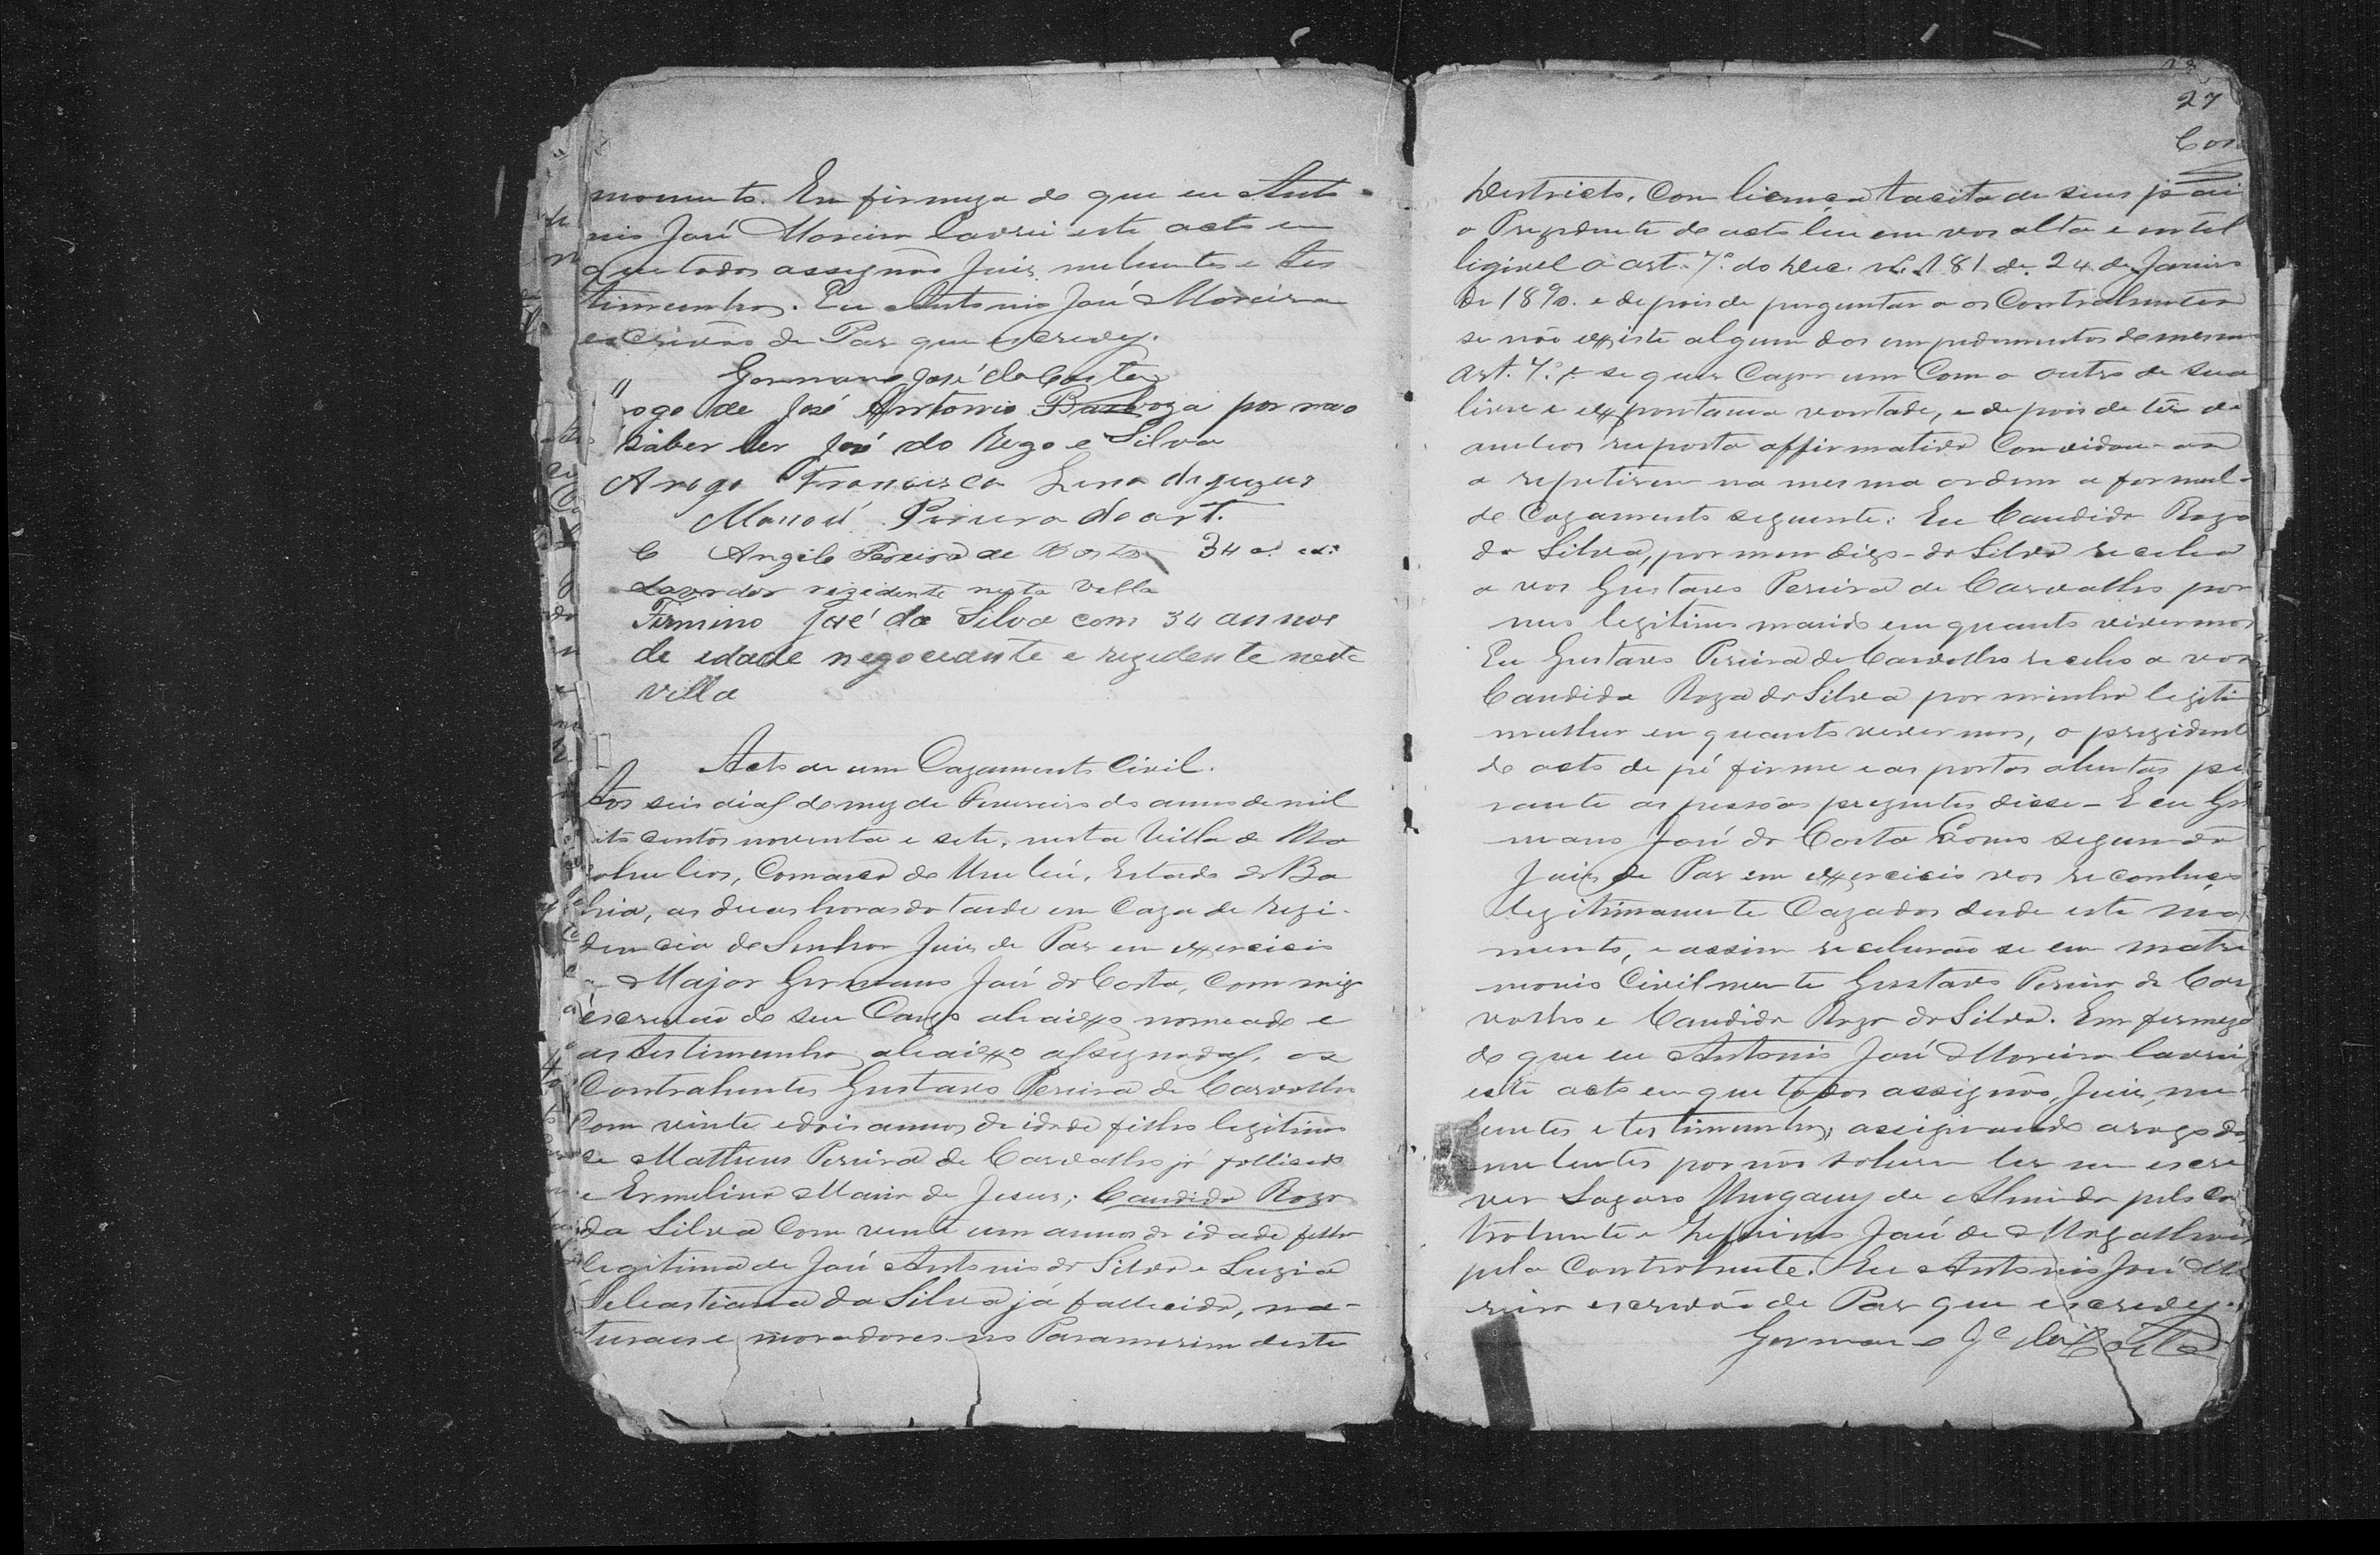 momento. Em firmeza do que eu Anto-
nio José Moreira lavrei este acto em
que todos assignão Juiz, nubentes e tes
timunhas. Eu Antonio José Moreira
escrivão de Paz que escrevy.
Germano José da Costa
rogo de José Antonio Barboza por nao
saber ler José do Rego e Silva
Arogo Francisca Lena de Jezus
Manoel Pereira
Angelo Pereira de 34 a.
Lavrador rezidente nesta Villa
Firmino José da Silva com 34 annos
de edade negociante e rezidente nesta
villa
Acto de um Cazamento Civil.
Aos seis dias do mez de Fevereiro do anno de mil
oito centos noventa e sete, nesta Villa de Ma
cahubas, Comarca de Urubú, Estado da Ba
hia, as duas horas da tarde em Caza de rezi-
dencia do Senhor Juiz de Paz em exercicio
o Major Germano José da Costa, Commigo
escrivão de seu Cargo abaixo nomeado e
as testimunhas abaixo assignadas, os
Contrahentes Gustavo Pereira de Carvalho
Com vinte e dois annos de idade filho legitimo
de Matheus Pereira de Carvalho já fallicido
e Ermelina Maria de Jesus; Candida Roza
da Silva Com vinte um annos de idade filha
legitima de José Antonio da Silva e Luzia
Sebastiana da Silva já fallecida, na-
turaes e moradores no Paramirim deste
27
Cos
Destricto, Com licença tacita de seus pai
o Prezidente do acto leu em vos alta e intel
ligivel o art. 7º do Dec. N. 181 de 24 de Janeiro
de 1890. e depois de perguntar a os Contrahentes
se não existe algum dos impedimentos do mesmo
art. 7º e se quer Cazar um Com o outro de sua
livre e expontanea vontade, e depois de têr de
ambos resposta affirmativa Convidou-os
a repetirem na mesma ordem a formul-
de Cazamento seguinte: Eu Candida Roza
da Silva, por mim digo - da Silva recebo
a vos Gustavo Pereira de Carvalho por
meu legitimo marido em quanto vivermos
Eu Gustavo Pereira de Carvalho recebo a vos
Candida Roza da Silva por minha legiti
mulher em quanto vivermos, o prezident
do acto de pé firme e as portas abertas pe
rante as pessôas prezentes disse - E eu Ger
mano José da Costa Como segundo
Juiz de Paz em exercicio vos reconheço
legitimamente Cazados desde este mo
mento, e assim receberão se em matri
monio Civilmente Gustavo Pereira de Car
valho e Candida Roza da Silva. Em firmeza
do que eu Antonio José Moreira lavrei
este acto em que todos assignão, Juiz, nu-
bentes e testimunhas, assignando arogo dos
nubentes por não saberem ler nem escre
ver Lazaro de Almeida pelo Con
trahente e Zeferino José de Magalhaes
pela Contrahente. Eu Antonio José Mo
reira escrivão de Paz que escrevy.
Germano Jé da Costa